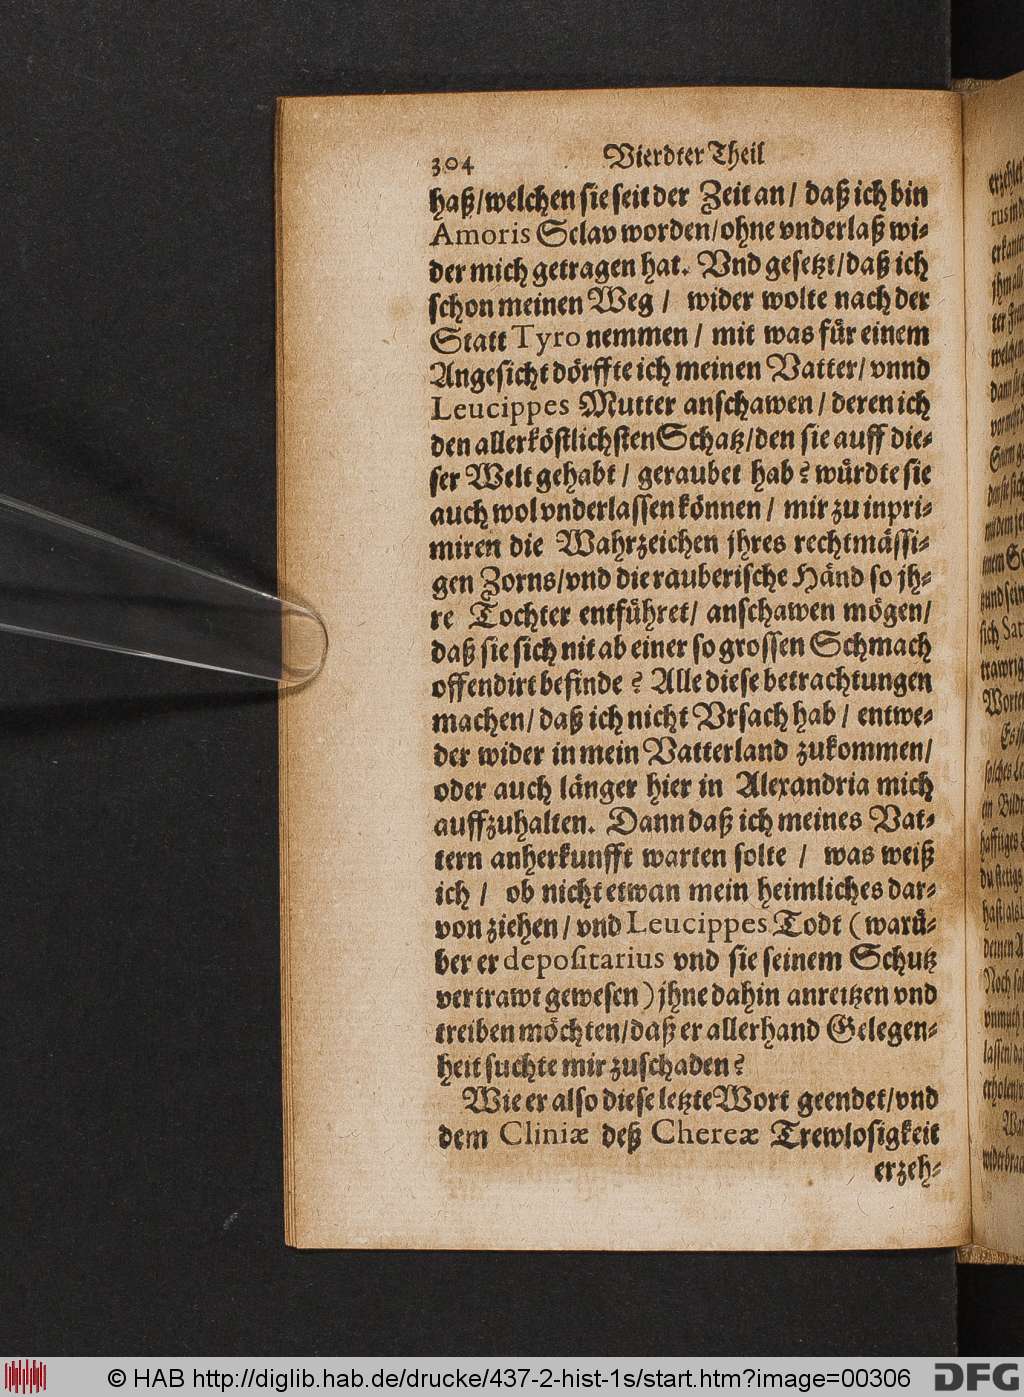 304 Vierdter Theil
haß/welchen sie seit der Zeit an/ daß ich bin
Amoris Sclav worden/ohne vnderlaß wi-
der mich getragen hat. Vnd gesetzt/daß ich
schon meinen Weg / wider wolte nach der
Statt Tyro nemmen / mit was für einem
Angesicht dörffte ich meinen Vatter/ vnnd
Leucippes Mutter anschawen / deren ich
den allerköstlichsten Schatz/den sie auff die-
ser Welt gehabt / geraubet hab? würdte sie
auch wol vnderlassen können / mir zu inpri-
miren die Wahrzeichen jhres rechtmässi-
gen Zorns/vnd die rauberische Händ so jh-
re Tochter entführet/ anschawen mögen/
daß sie sich nit ab einer so grossen Schmach
offendirt befinde? Alle diese betrachtungen
machen/daß ich nicht Vrsach hab / entwe-
der wider in mein Vatterland zukommen/
oder auch länger hier in Alexandria mich
auffzuhalten. Dann daß ich meines Vat-
tern anherkunfft warten solte / was weiß
ich / ob nicht etwan mein heimliches dar-
von ziehen / vnd Leucippes Todt (warü-
ber er depositarius vnd sie seinem Schutz
vertrawt gewesen) jhne dahin anreitzen vnd
treiben möchten/daß er allerhand Gelegen-
heit suchte mir zuschaden?
Wie er also diese letzte Wort geendet/vnd
dem Cliniæ deß Chereæ Trewlosigkeit
erzeh-
© HAB http://diglib.hab.de/drucke/437-2-hist-1s/start.htm?image=00306
DFG